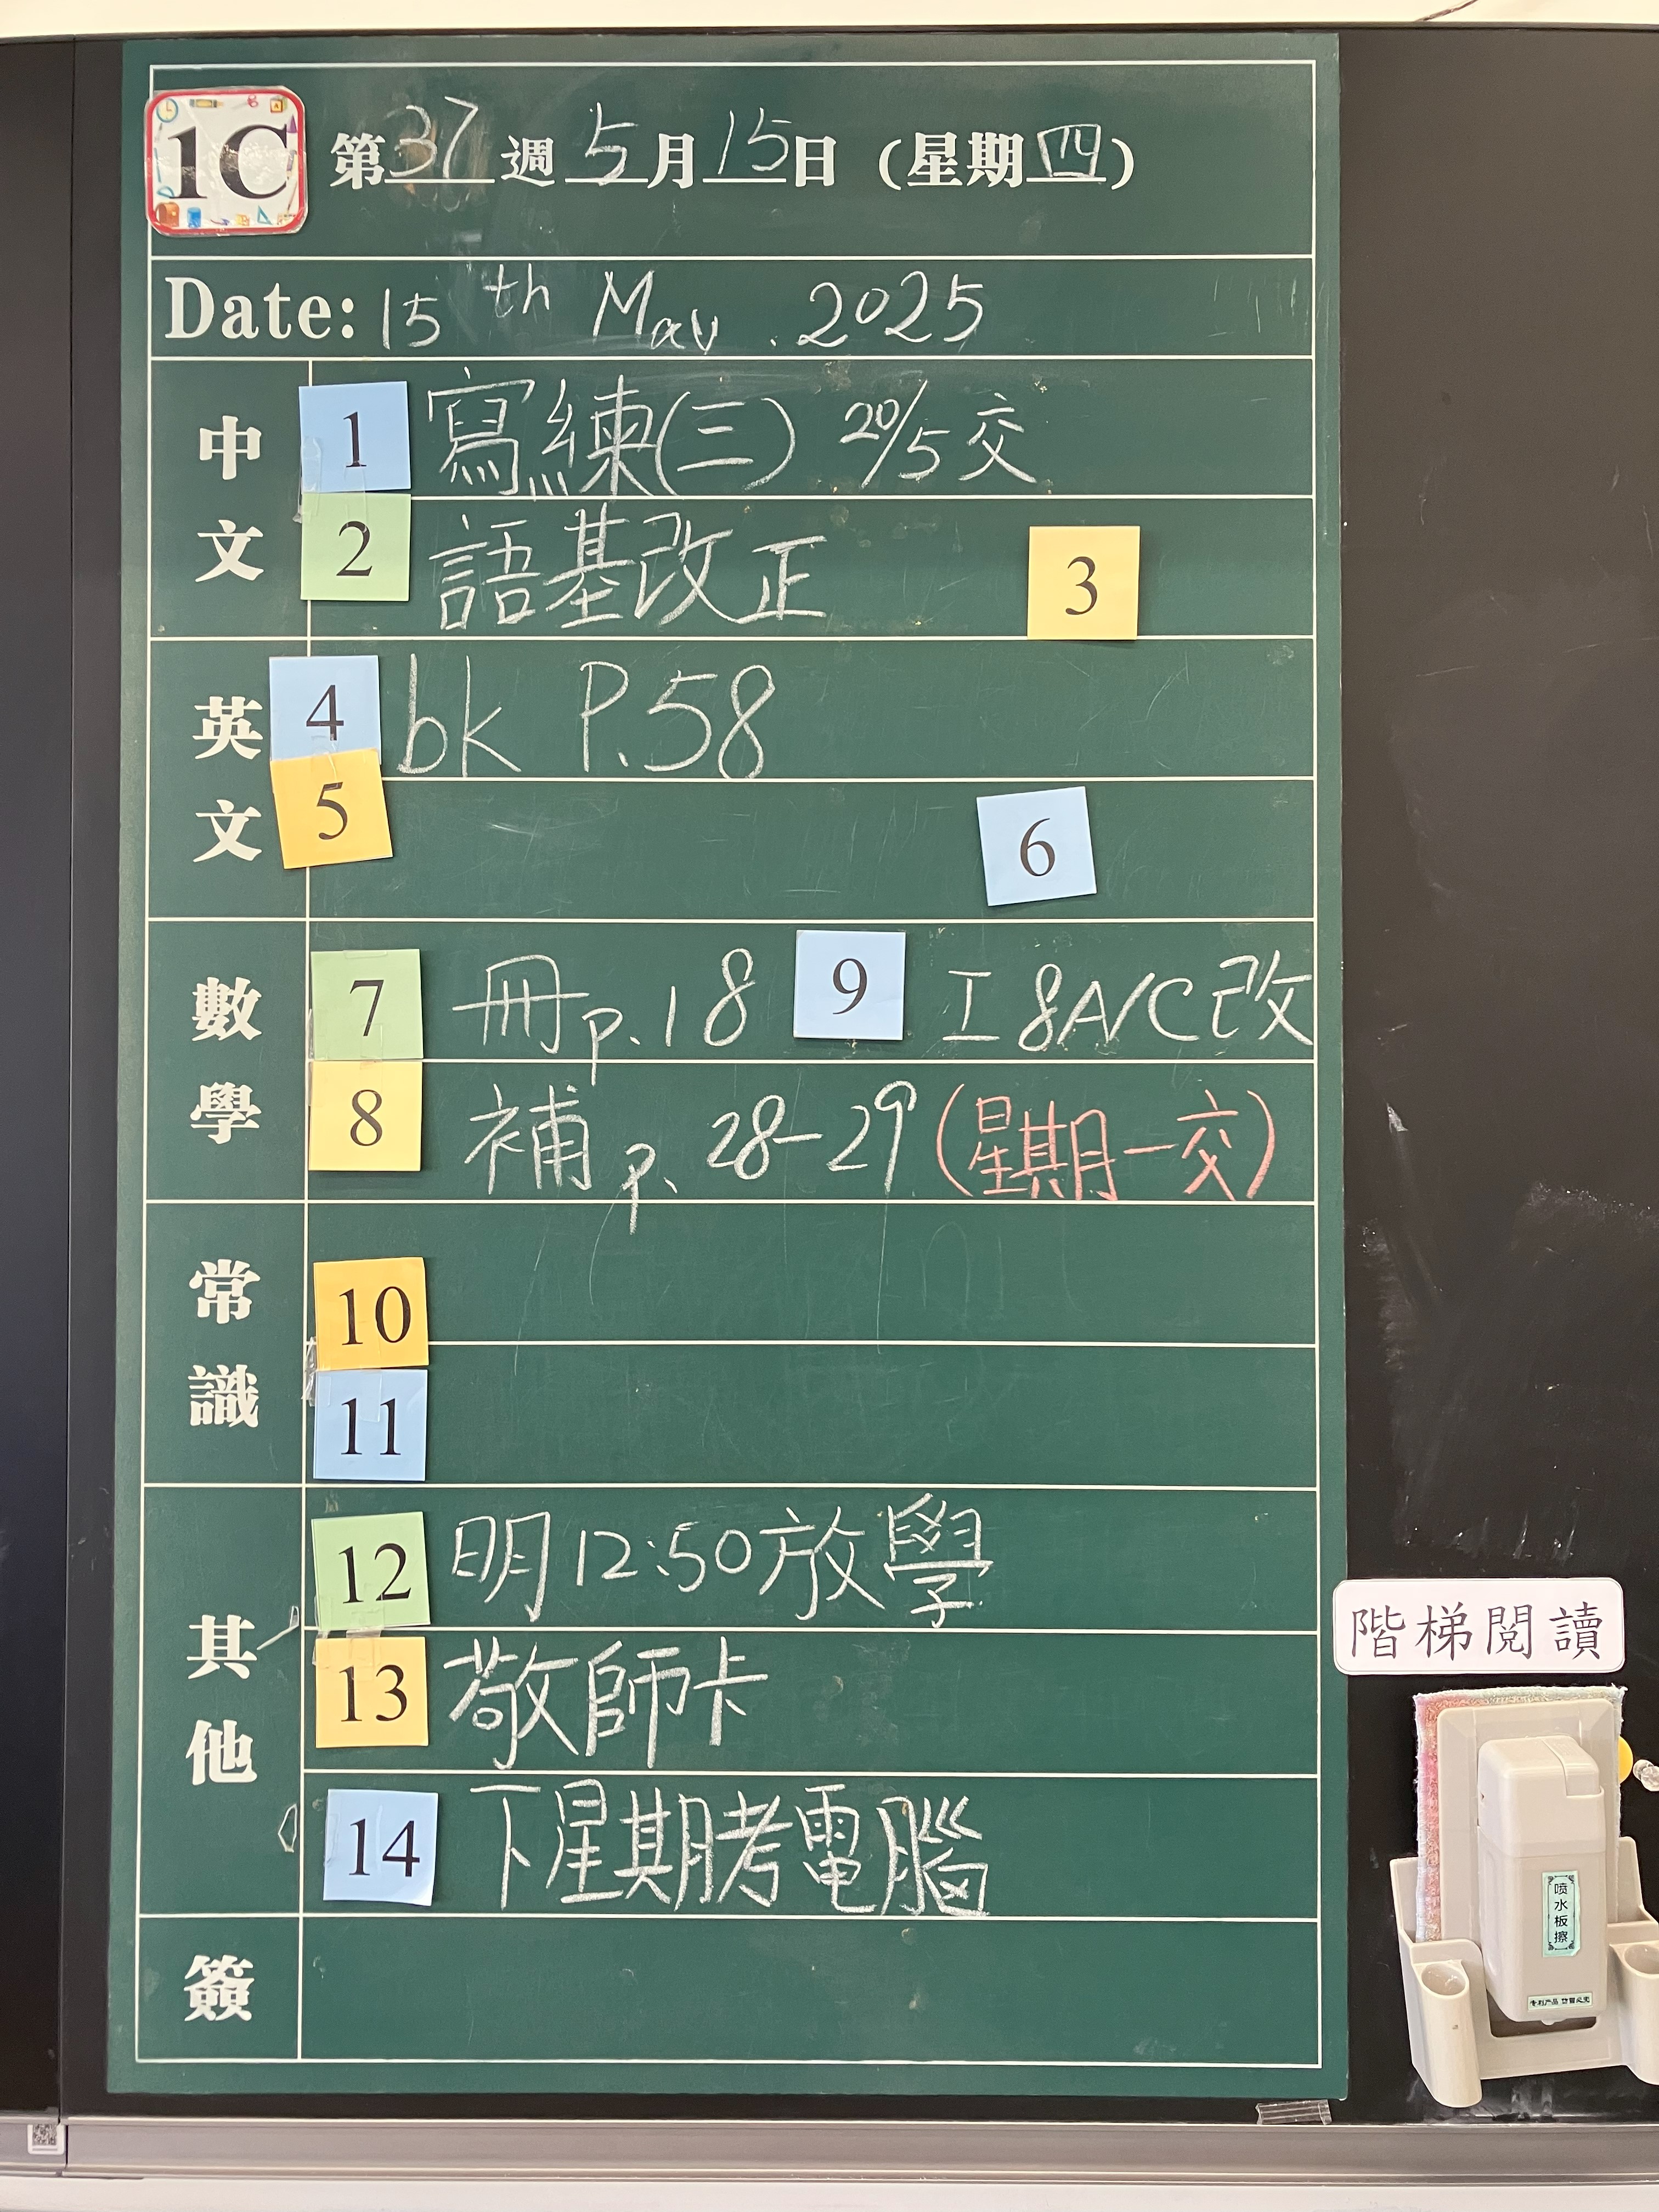 1C 第37週5月15日(星期四)
Date: 15th May. 2025
中文
1 寫練(三) 20/5交
2 語基改正 3
英文
4 bk P.58
5 6
數學
7 冊p.18 9 工8A/C改
8 補p.28-29(星期一交)
常識
10
11
其他
12 明12:50放學
13 敬師卡
14 下星期考電腦
簽
階梯閱讀
喷水板擦